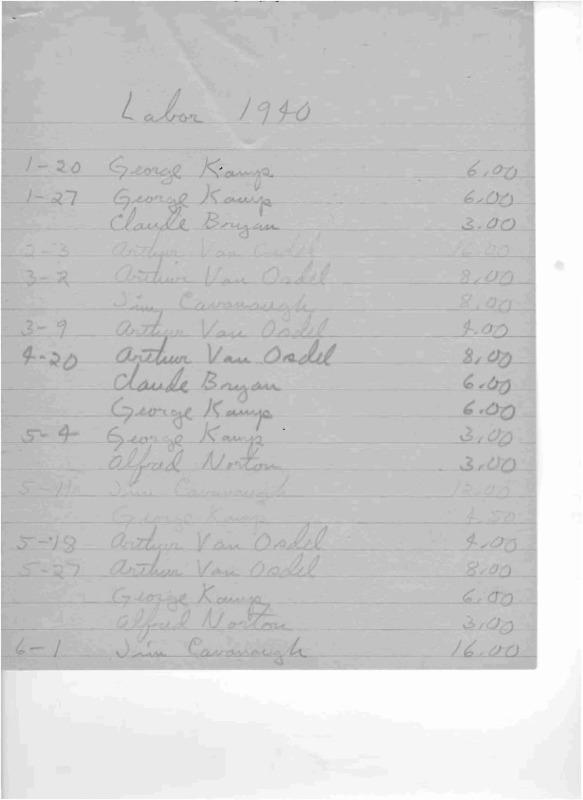 Labor 1940
1-20 George Kamp 6.00
1-27 George Kamp 6.00
Claude Bryan 3.00
2-3 Arthur Van Osdel 16.00
3-2 Arthur Van Osdel 8.00
Jim Cavanaugh 8.00
3-9 Arthur Van Osdel 4.00
4-20 Arthur Van Osdel 8.00
Claude Bryan 6.00
George Kamp 6.00
5-4 George Kamp 3.00
Alfred Norton 3.00
5-11 Jim Cavanaugh 12.00
George Kamp 4.50
5-18 Arthur Van Osdel 4.00
5-27 Arthur Van Osdel 8.00
George Kamp 6.00
Alfred Norton 3.00
6-1 Jim Cavanaugh 16.00